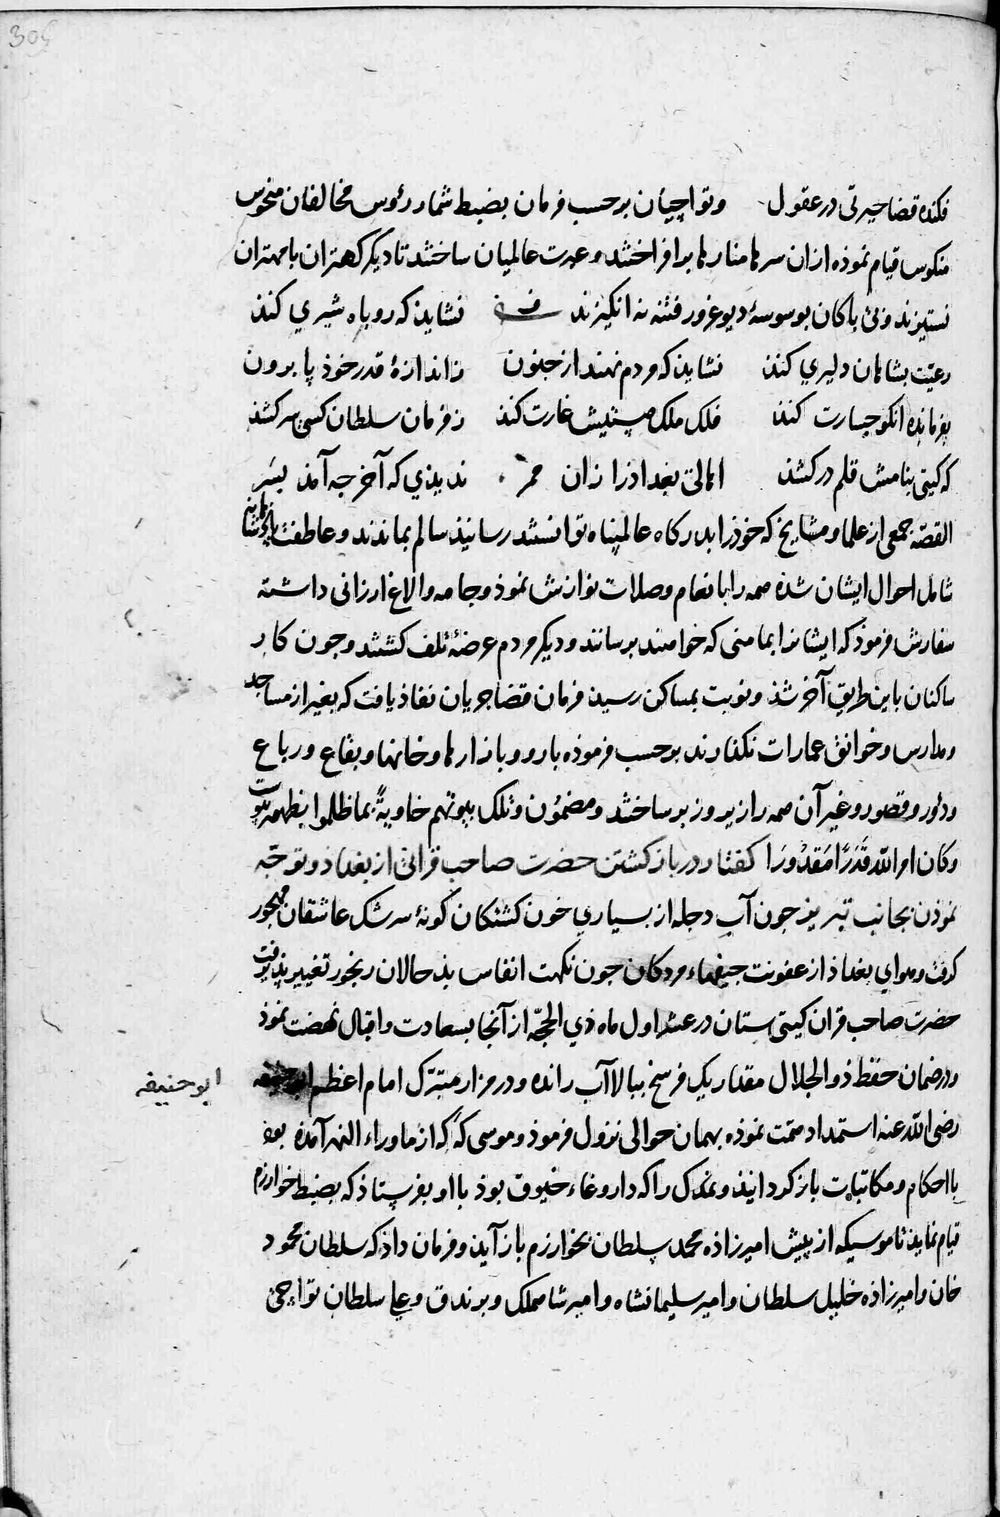 305
فکنده قضا حیرتی در عقول وتواچیان برحسب فرمان بضبط شمار رؤس مخالفان منحوس
منکوس قیام نموذه ازان سرها منارها برافراختند وعبرت عالمیان ساختند تا دیکر کهتران با مهتران
نستیزند وبی باکان بوسوسهٔ دیو غرور فتنه نه انکیزند نشایذ که روباه شیری کند
رعیّت بشاهان دلیری کنذ نشایذ که مردم نهند از جنون ز اندازهٔ قدر خوذ پا برون
بفرمانده انکو جسارت کند فلک ملک هستیش غارت کند ز فرمان سلطان کسی سرکشذ
که کیتی بنامش قلم درکشذ اهالی بغداذ را زان ندیذی که آخر چه آمذ بسَر
القصّه جمعی از علما ومشایخ که خوذرا بدرکاه عالمپناه توانستند رسانیذ سالم بماندند وعاطفت پاذشاهانه
شامل احوال ایشان شذه همه را بانعام وصلات نوازش نموذ وجامه والاغ ارزانی داشته
سفارش فرموذ که ایشانرا بمامنی که خواهند برسانند ودیکر مردم عرضهٔ تلف کشتند وجون کار
ساکنان باین طریق آخر شذ ونوبت بمساکن رسیذ فرمان قضا جریان نفاذ یافت که بغیر از مساجد
ومدارس وخوانق عمارات نکذارند برحسب فرموذه بارو وبازارها وخانها وبقاع ورباع
ودور وقصور وغیر آن همه را زیر وزبر ساختند ومضمُون وتلک بیوتهم خاویةً بما ظلموا بظهور پیوست
وکان امر الله قَدَرًا مَقدُورًا کفتار در بازکشتن حضرت صاحب قرانی از بغداذ وتوجّه
نموذن بجانب تبریز جون آب دجله از بسیاری خون کشتکان کونهٔ سرشک عاشقان مهجور
کرفت وهوای بغداذ از عفونت جیفهاء مردکان جون نکهت انفاس بذحالان رنجور تغییر پذیرفت
حضرت صاحب قران کیتی ستان در عشر اول ماه ذی الحجّه از آنجا بسعادت واقبال نهضت نموذ
ودر ضمان حفظ ذو الجلال مقدار یک فرسخ ببالا آب رانده ودر مزار متبرّک امام اعظم ابو حنیفه
ابو حنیفه
رضی الله عنه استمداد همّت نموذه بهمان حوالی نزول فرموذ وموسی که که از ماوراء النهر آمذه بوذ
با احکام ومکاتبات بازکردانیذ و را که داروغاء خیوق بوذ با او بفرستاذ که بضبط خوارزم
قیام نمایذ تا موسیکه از پیش امیرزاذه محمد سلطان بخوارزم باز آیذ وفرمان داذ که سلطان محمود
خان وامیرزاذه خلیل سلطان وامیر سلیمانشاه وامیر شاهملک وبرندق وعلی سلطان تواجی